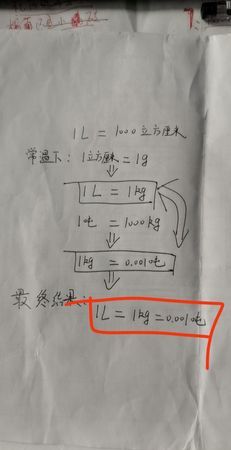 1L = 1000立方厘米
常温下：1立方厘米 = 1g
1L = 1kg
1吨 = 1000kg
1kg = 0.001吨
最终结果：1L = 1kg = 0.001吨